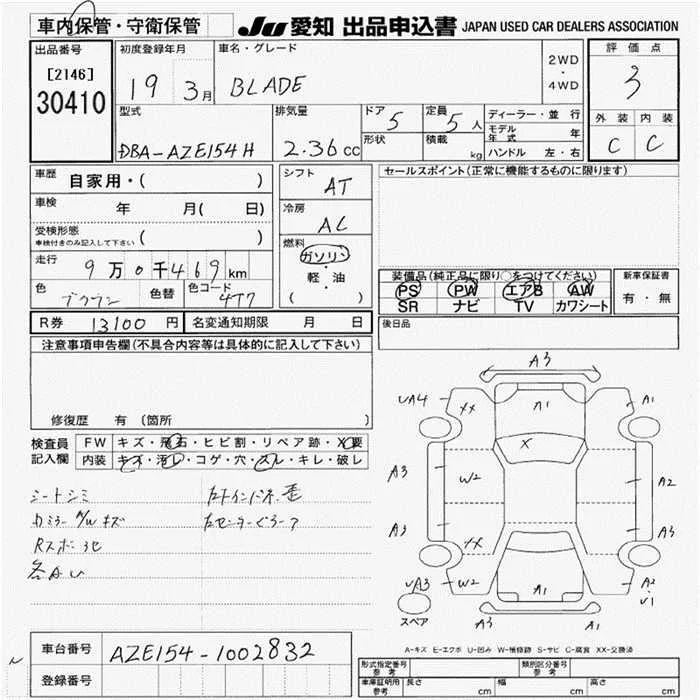 車内保管・守衛保管
JU 愛知 出品申込書 JAPAN USED CAR DEALERS ASSOCIATION
出品番号
[2146]
30410
初度登録年月
19 3月
車名・グレード
BLADE
2WD
・
4WD
評価点
3
外装 内装
C C
型式
DBA-AZE154H
排気量
2.36cc
ドア 5
形状
定員 5人
積載 kg
ディーラー・並行
モデル年式 年
ハンドル 左・右
車歴 自家用・( )
車検 年 月( 日)
受検形態
車検付きのみ記入して下さい ( )
走行 9万0千469km
色 ブラウン 色替 色コード 4T7
シフト
AT
冷房
AC
燃料
ガソリン
・
軽・油
( )
セールスポイント(正常に機能するものに限ります)
装備品(純正品に限り○をつけてください)
PS PW エアB AW
SR ナビ TV カワシート
新車保証書
有・無
R券 13100円 名変通知期限 月 日
後日品
注意事項申告欄(不具合内容等は具体的に記入して下さい)
修復歴 有 (箇所 )
検査員記入欄
FW キズ・飛石・ヒビ割・リペア跡・X要
内装 キズ・汚レ・コゲ・穴・スレ・キレ・破レ
シートシミ
カミラー A/W キズ
各AU
A3
UA4 XX A1 A1
X
A3 W2 A2
A3 XX A3
UA3 W2 A1 A2
U1
スペア A3 A1
A-キズ E-エクボ U-凹み W-補修跡 S-サビ C-腐食 XX-交換済
車台番号 AZE154-1002832
登録番号
型式指定番号
参考
類別区分番号
参考
車庫証明用
参考
長さ cm 幅 cm 高さ cm